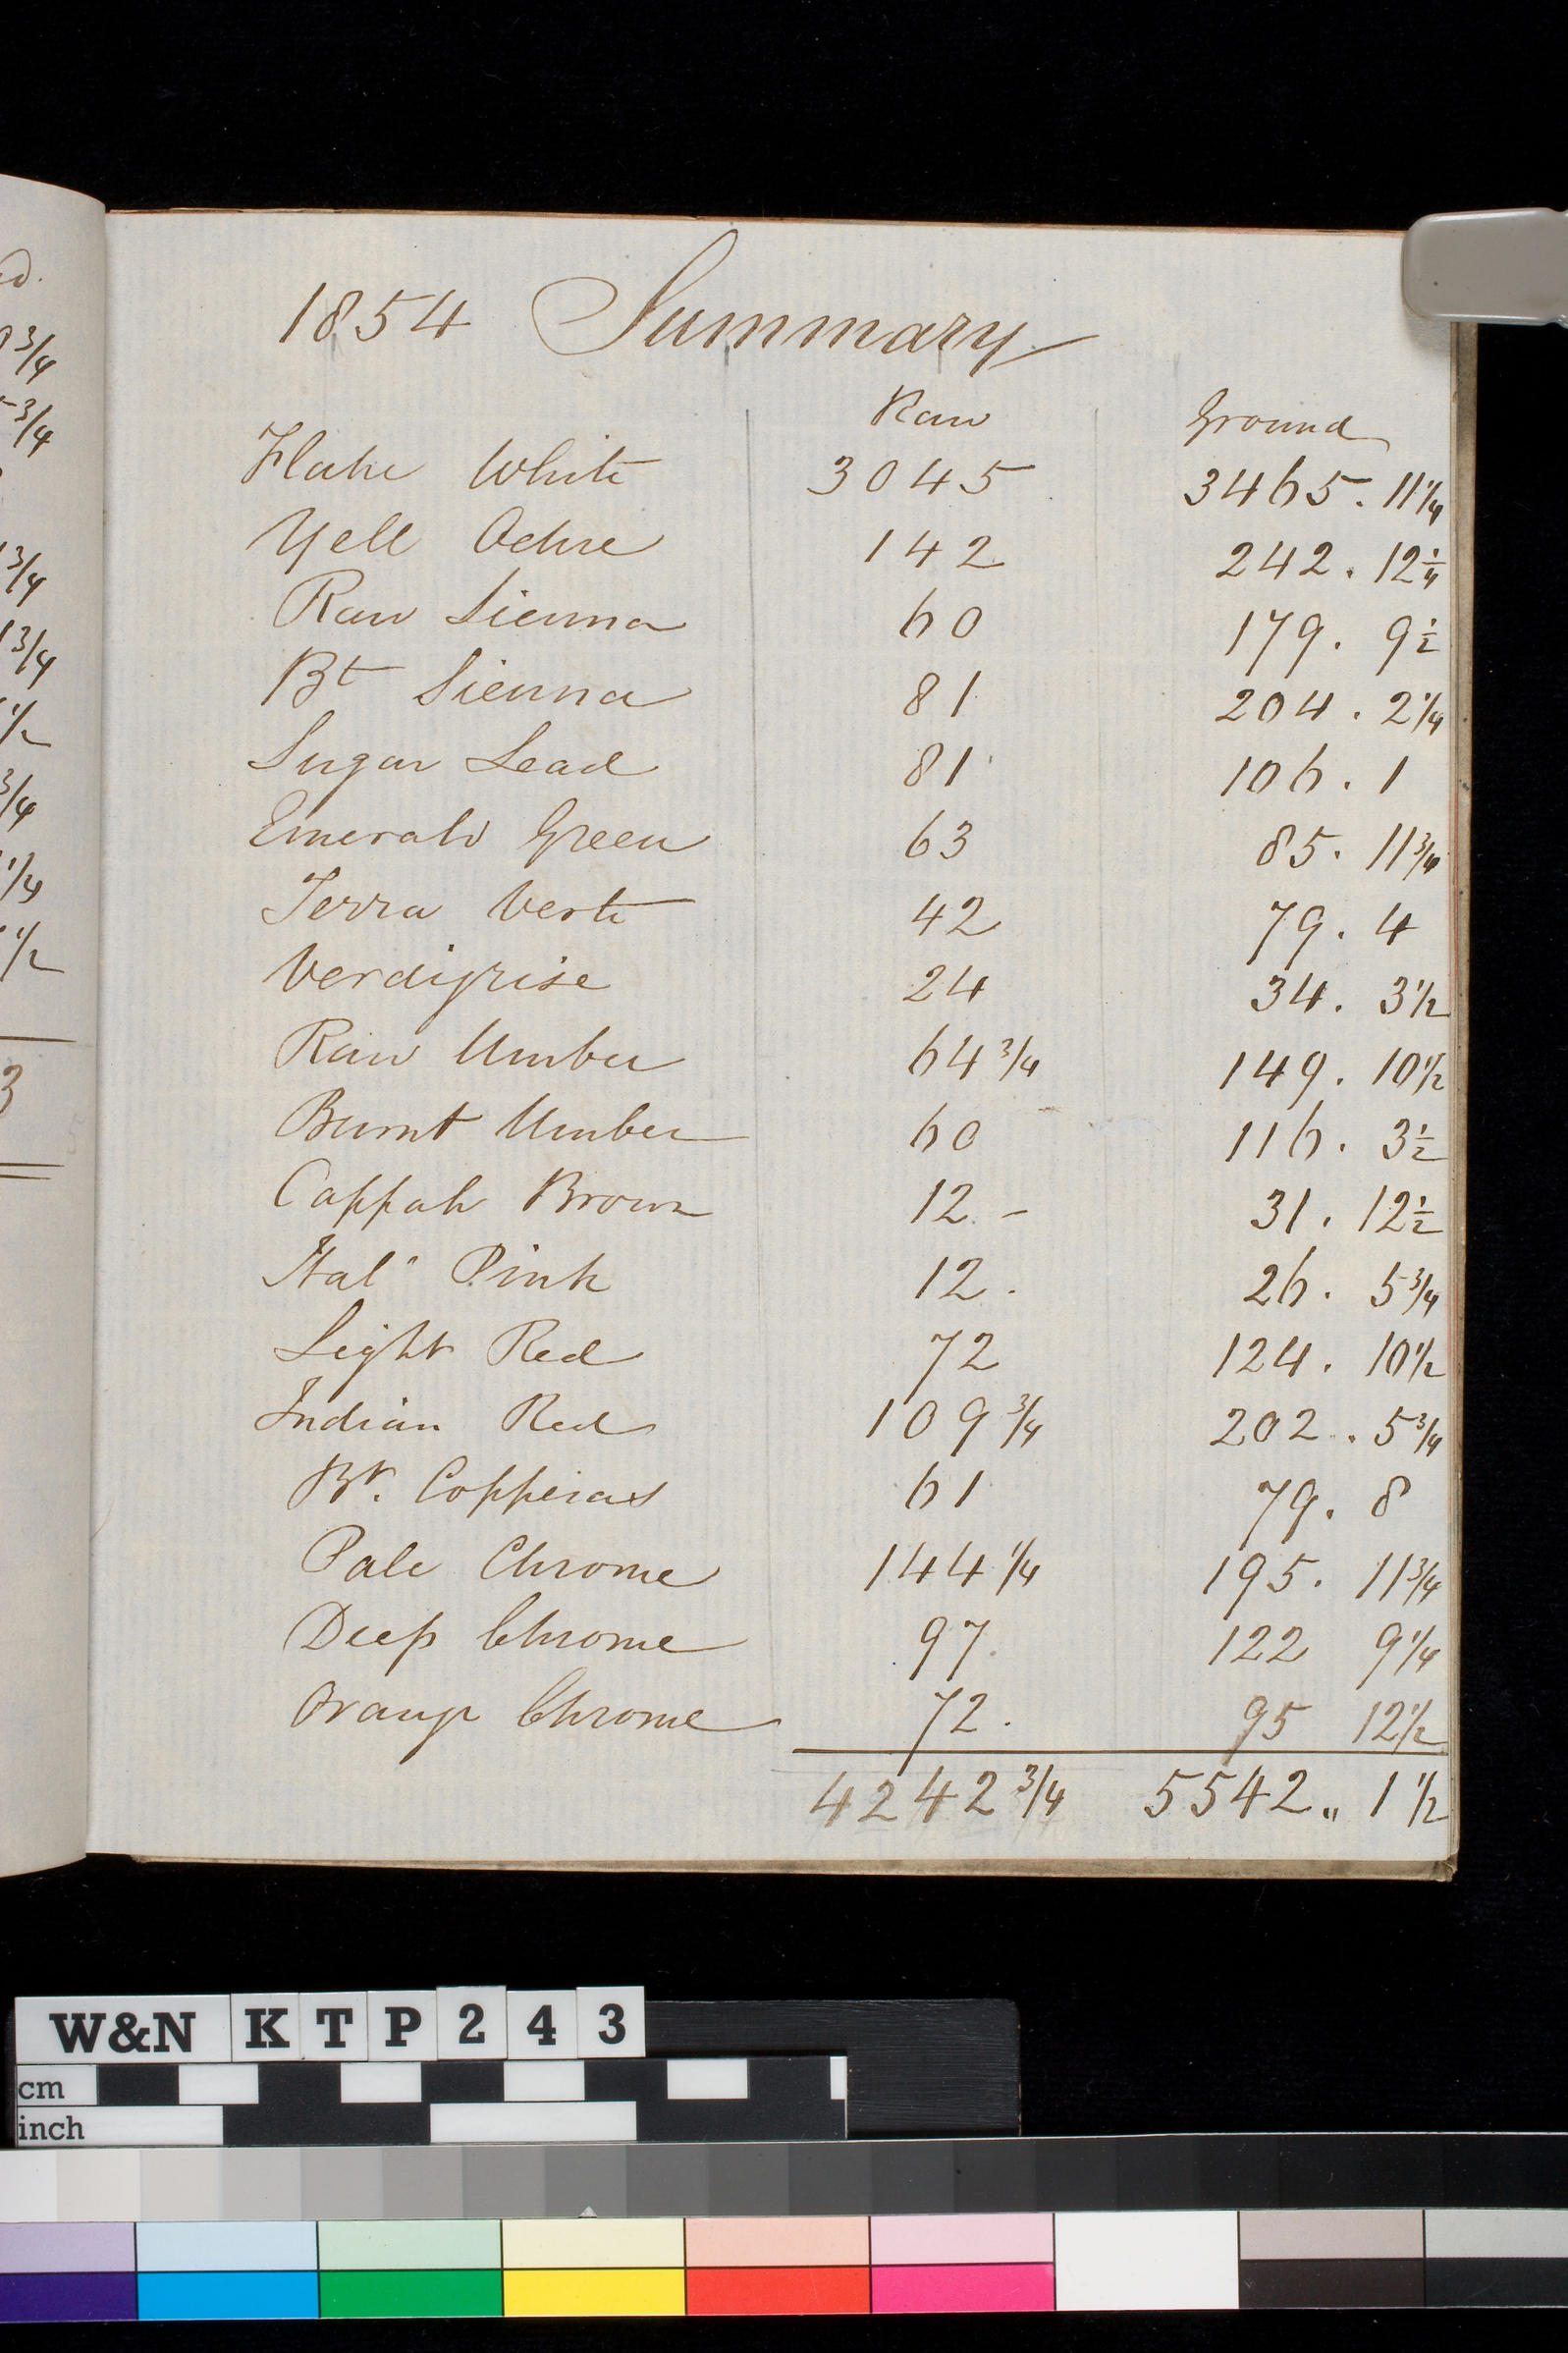 1854 Summary
Raw Ground
Flake White 3045 3465. 11 1/4
Yell Ochre 142 242. 12 1/4
Raw Sienna 60 179. 9 1/2
Bt Sienna 81 204. 2 1/4
Sugar Lead 81 106. 1
Emerald Green 63 85. 11 3/4
Terra Verte 42 79. 4
Verdigrise 24 34. 3 1/2
Raw Umber 64 3/4 149. 10 1/2
Burnt Umber 60 116. 3 1/2
Cappah Brown 12 - 31. 12 1/2
Ital Pink 12. 26. 5 3/4
Light Red 72 124. 10 1/2
Indian Red 109 3/4 202. 5 3/4
Bt. Copperas 61 79. 8
Pale Chrome 144 1/4 195. 11 3/4
Deep Chrome 97 122 9 1/4
Orange Chrome 72. 95 12 1/2
4242 3/4 5542 „ 1 1/2
3/4
3/4
3/4
3/4
1/2
3/4
1/4
1/2
3
W&N KTP243
cm
inch